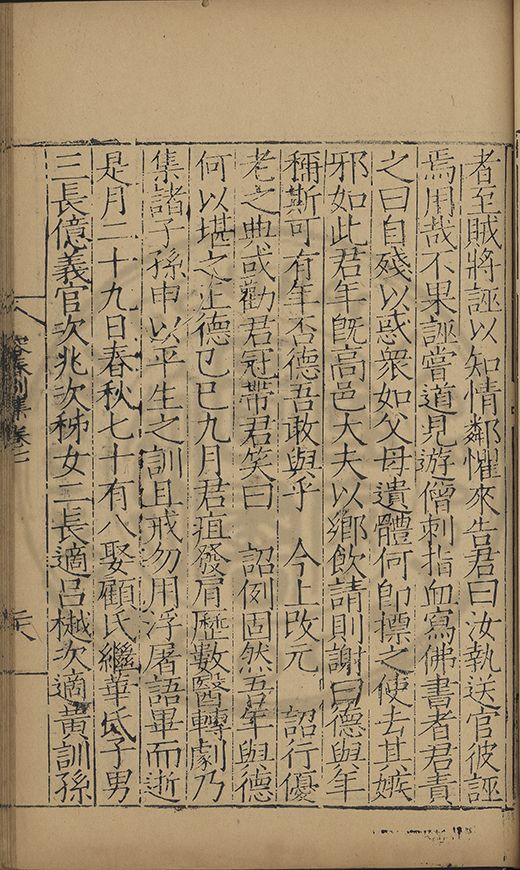 者至賊將誣以知情鄰懼來告君曰汝執送官彼誣
焉用哉不果誣嘗道見遊僧刺指血寫佛書者君責
之曰自殘以惑衆如父母遺體何卽摽之使去其嫉
邪如此君年旣高邑大夫以鄉飲請則謝曰德與年
稱斯可有年否德吾敢與乎　今上改元　詔行優
老之典或勸君冠帶君笑曰　詔例固然吾年與德
何以堪之正德己巳九月君疽發肩歷數醫轉劇乃
集諸子孫申以平生之訓且戒勿用浮屠語畢而逝
是月二十九日春秋七十有八娶顧氏繼華氏子男
三長億義官次兆次秭女二長適呂樾次適黃訓孫
容春別集卷二